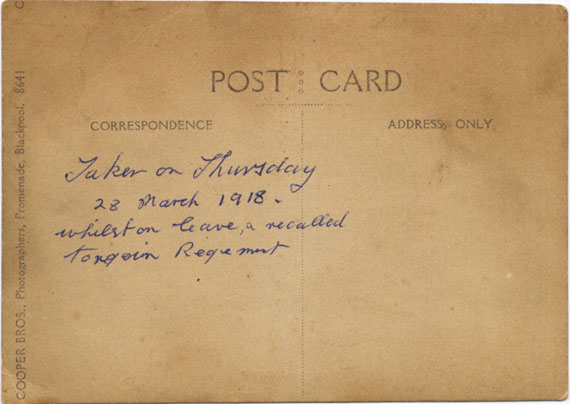 POST CARD
CORRESPONDENCE
ADDRESS ONLY
Taken on Thursday
28 March 1918.
whilst on leave, & recalled
to rejoin Regement
COOPER BROS., Photographers, Promenade, Blackpool, 8641